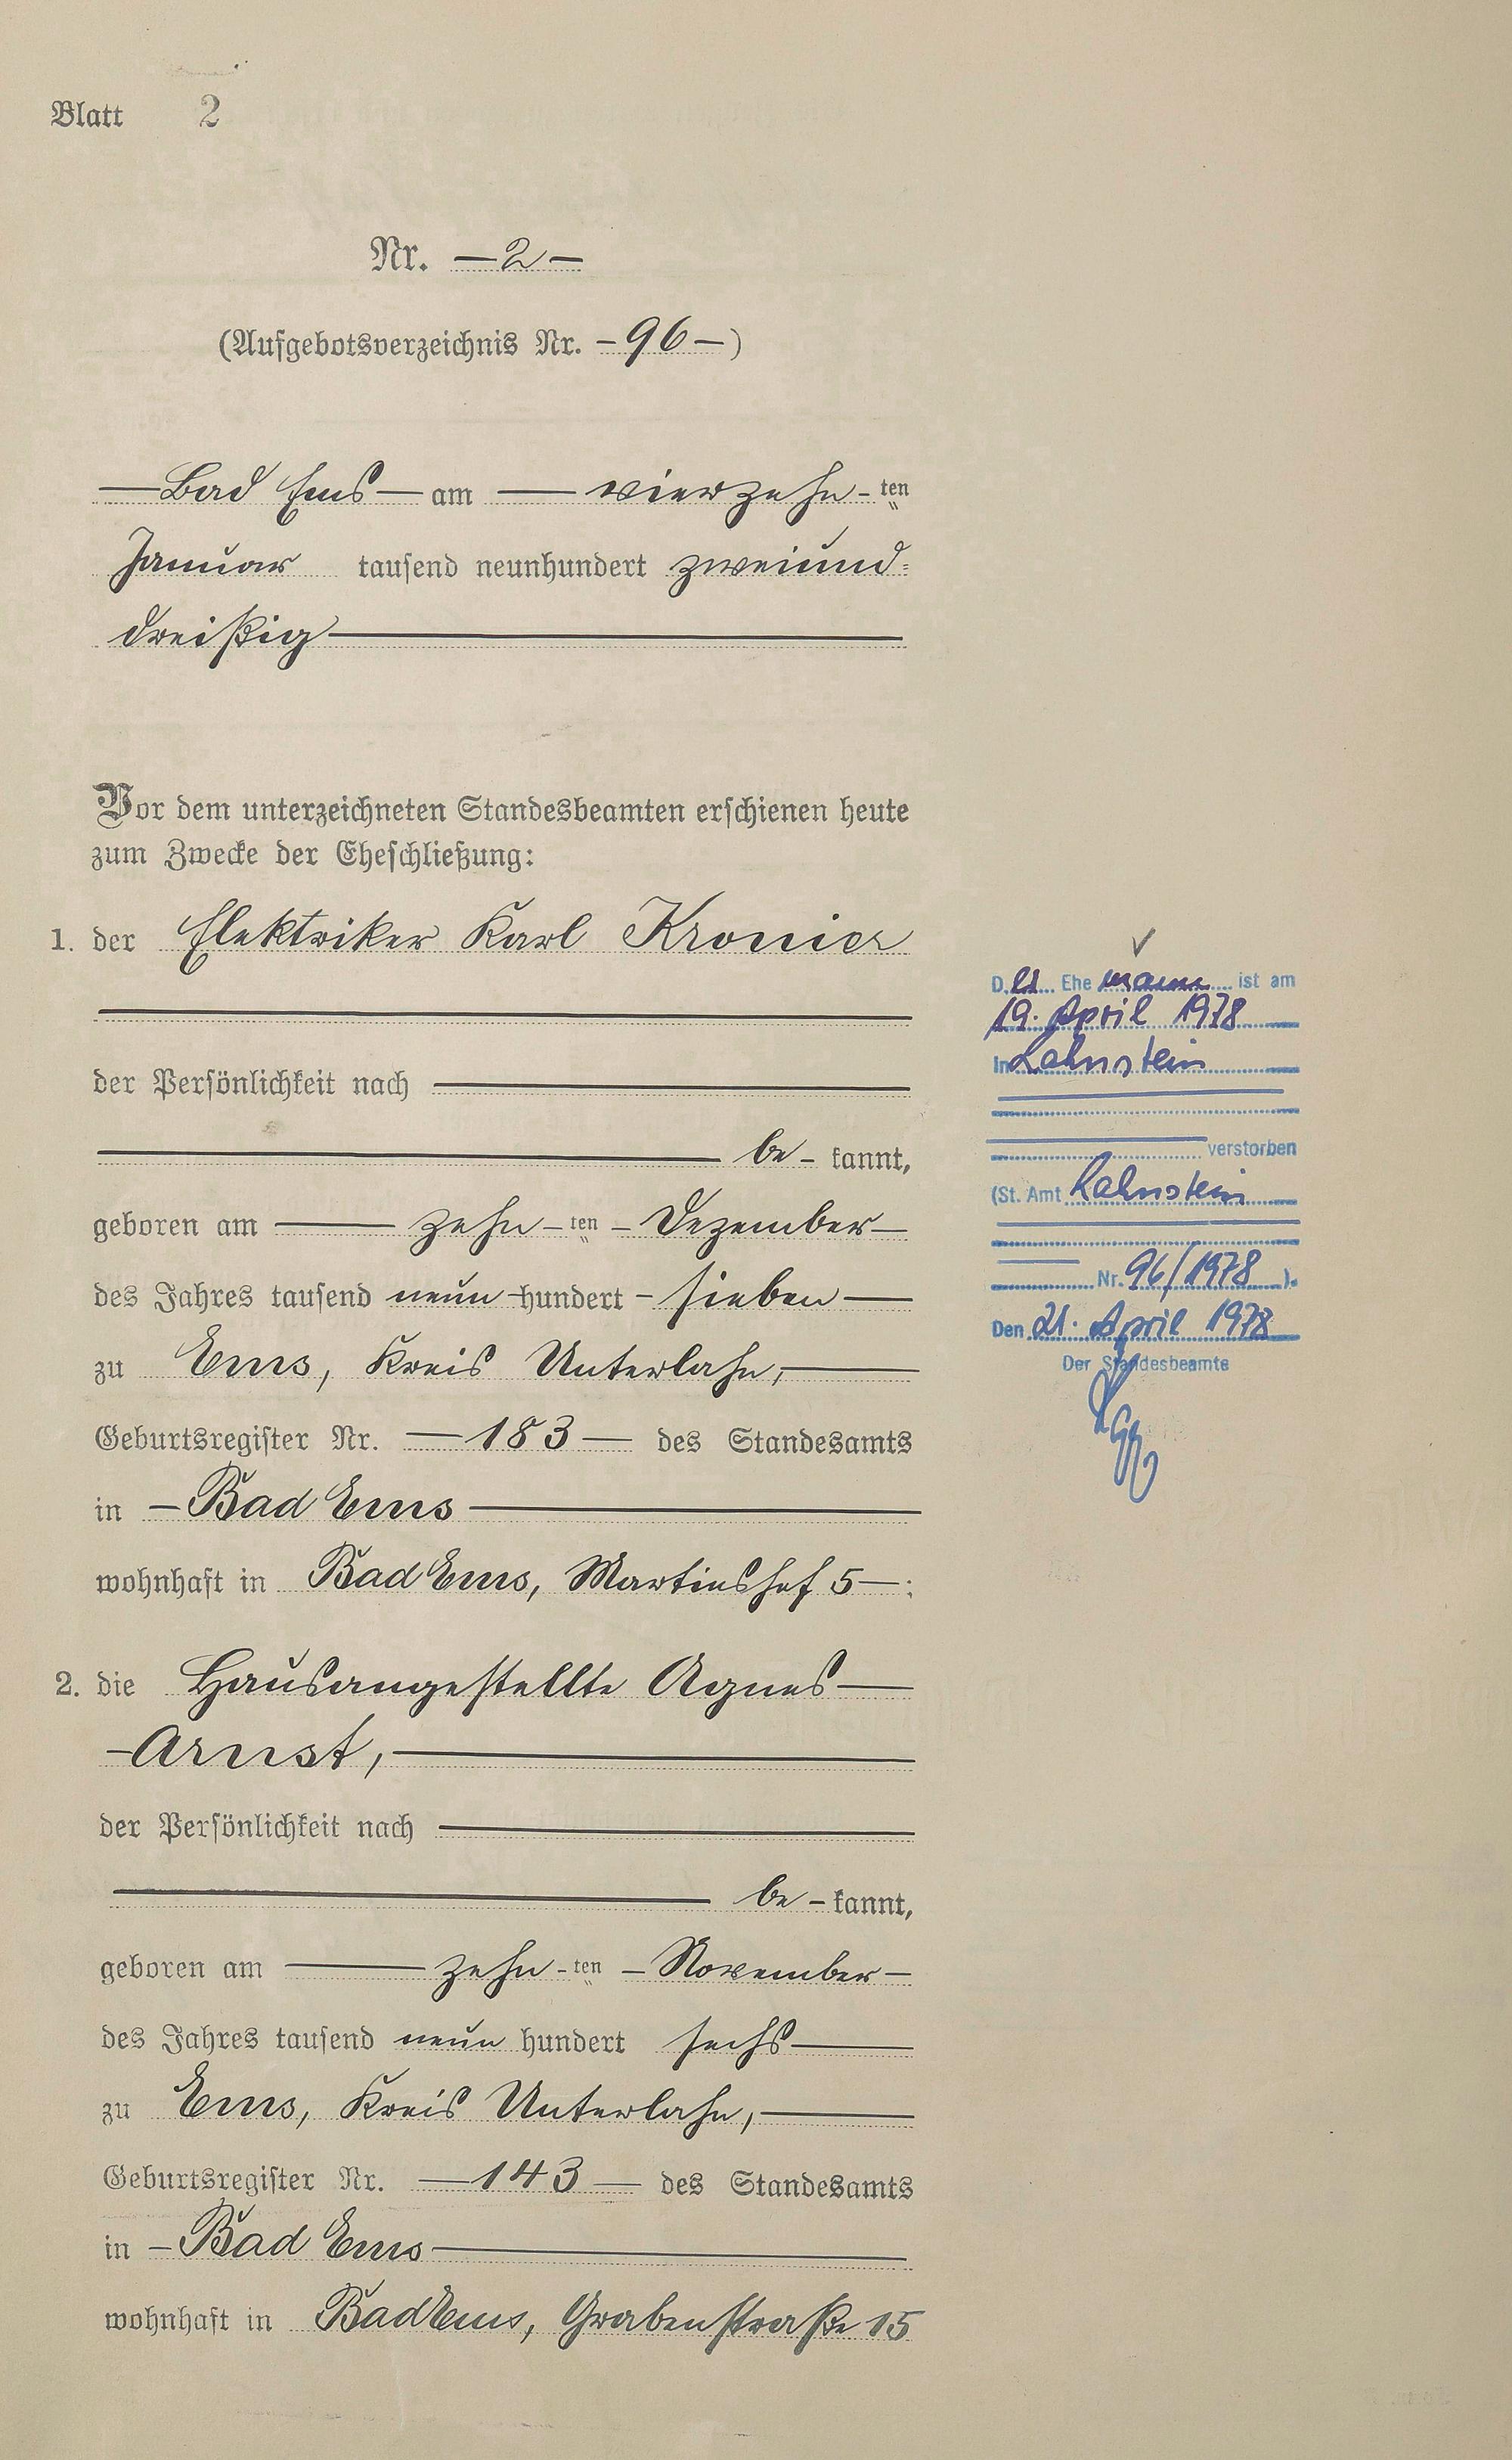 Blatt 2
Nr. — 2 —
(Aufgebotsverzeichnis Nr. — 96 — )
— Bad Ems — am — vierzehn - ten
Januar tausend neunhundert zweiund-
dreißig —
Vor dem unterzeichneten Standesbeamten erschienen heute
zum Zwecke der Eheschließung:
1. der Elektriker Karl Kronier
der Persönlichkeit nach —
— be - kannt,
geboren am — zehn - ten - Dezember —
des Jahres tausend neun - hundert - sieben —
zu Ems, Kreis Unterlahn, —
Geburtsregister Nr. — 183 — des Standesamts
in — Bad Ems —
wohnhaft in Bad Ems, Martinshof 5 — ;
2. die Hausangestellte Agnes —
— Arnst, —
der Persönlichkeit nach —
— be - kannt,
geboren am — zehn - ten — November —
des Jahres tausend neun hundert sechs —
zu Ems, Kreis Unterlahn, —
Geburtsregister Nr. — 143 — des Standesamts
in — Bad Ems —
wohnhaft in Bad Ems, Grabenstraße 15
D. er Ehe mann ist am
19. April 1978
in Lahnstein
verstorben
(St. Amt Lahnstein
Nr. 96/1978 ).
Den 21. April 1978
Der Standesbeamte